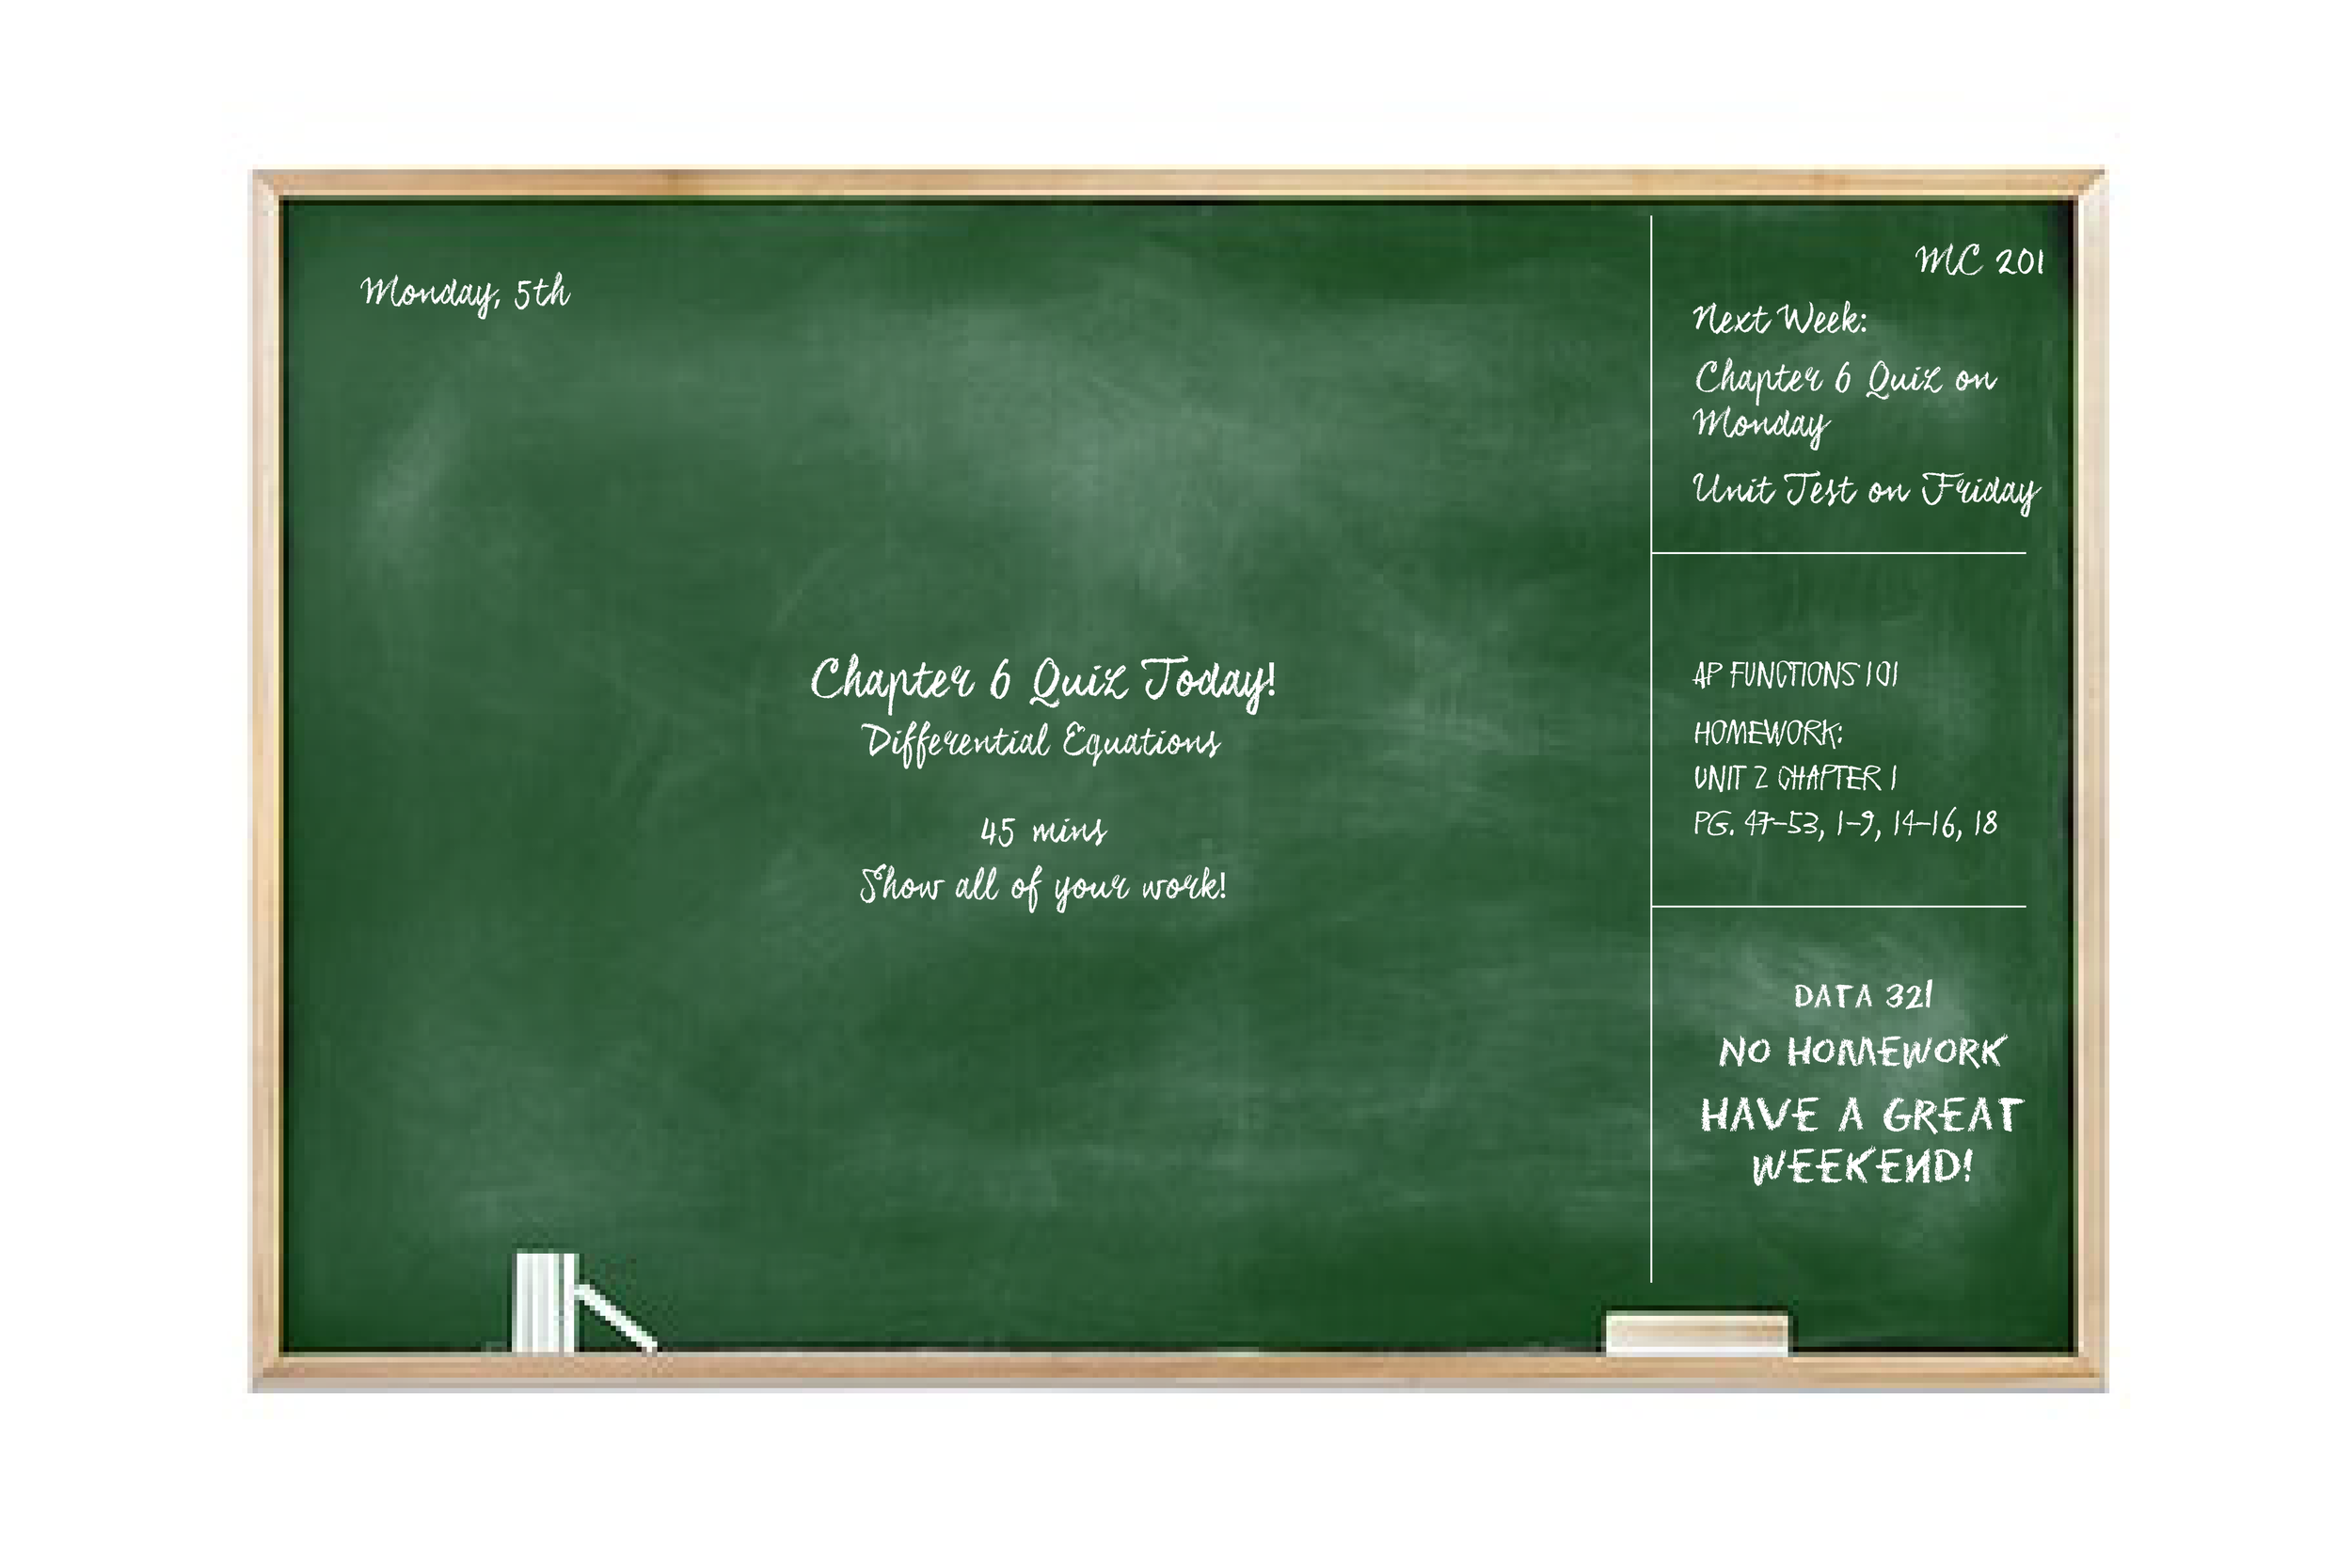 Monday, 5th
Chapter 6 Quiz Today!
Differential Equations
45 mins
Show all of your work!
MC 201
Next Week:
Chapter 6 Quiz on
Monday
Unit Test on Friday
AP FUNCTIONS 101
HOMEWORK:
UNIT 2 CHAPTER 1
PG. 47-53, 1-9, 14-16, 18
DATA 321
NO HOMEWORK
HAVE A GREAT
WEEKEND!